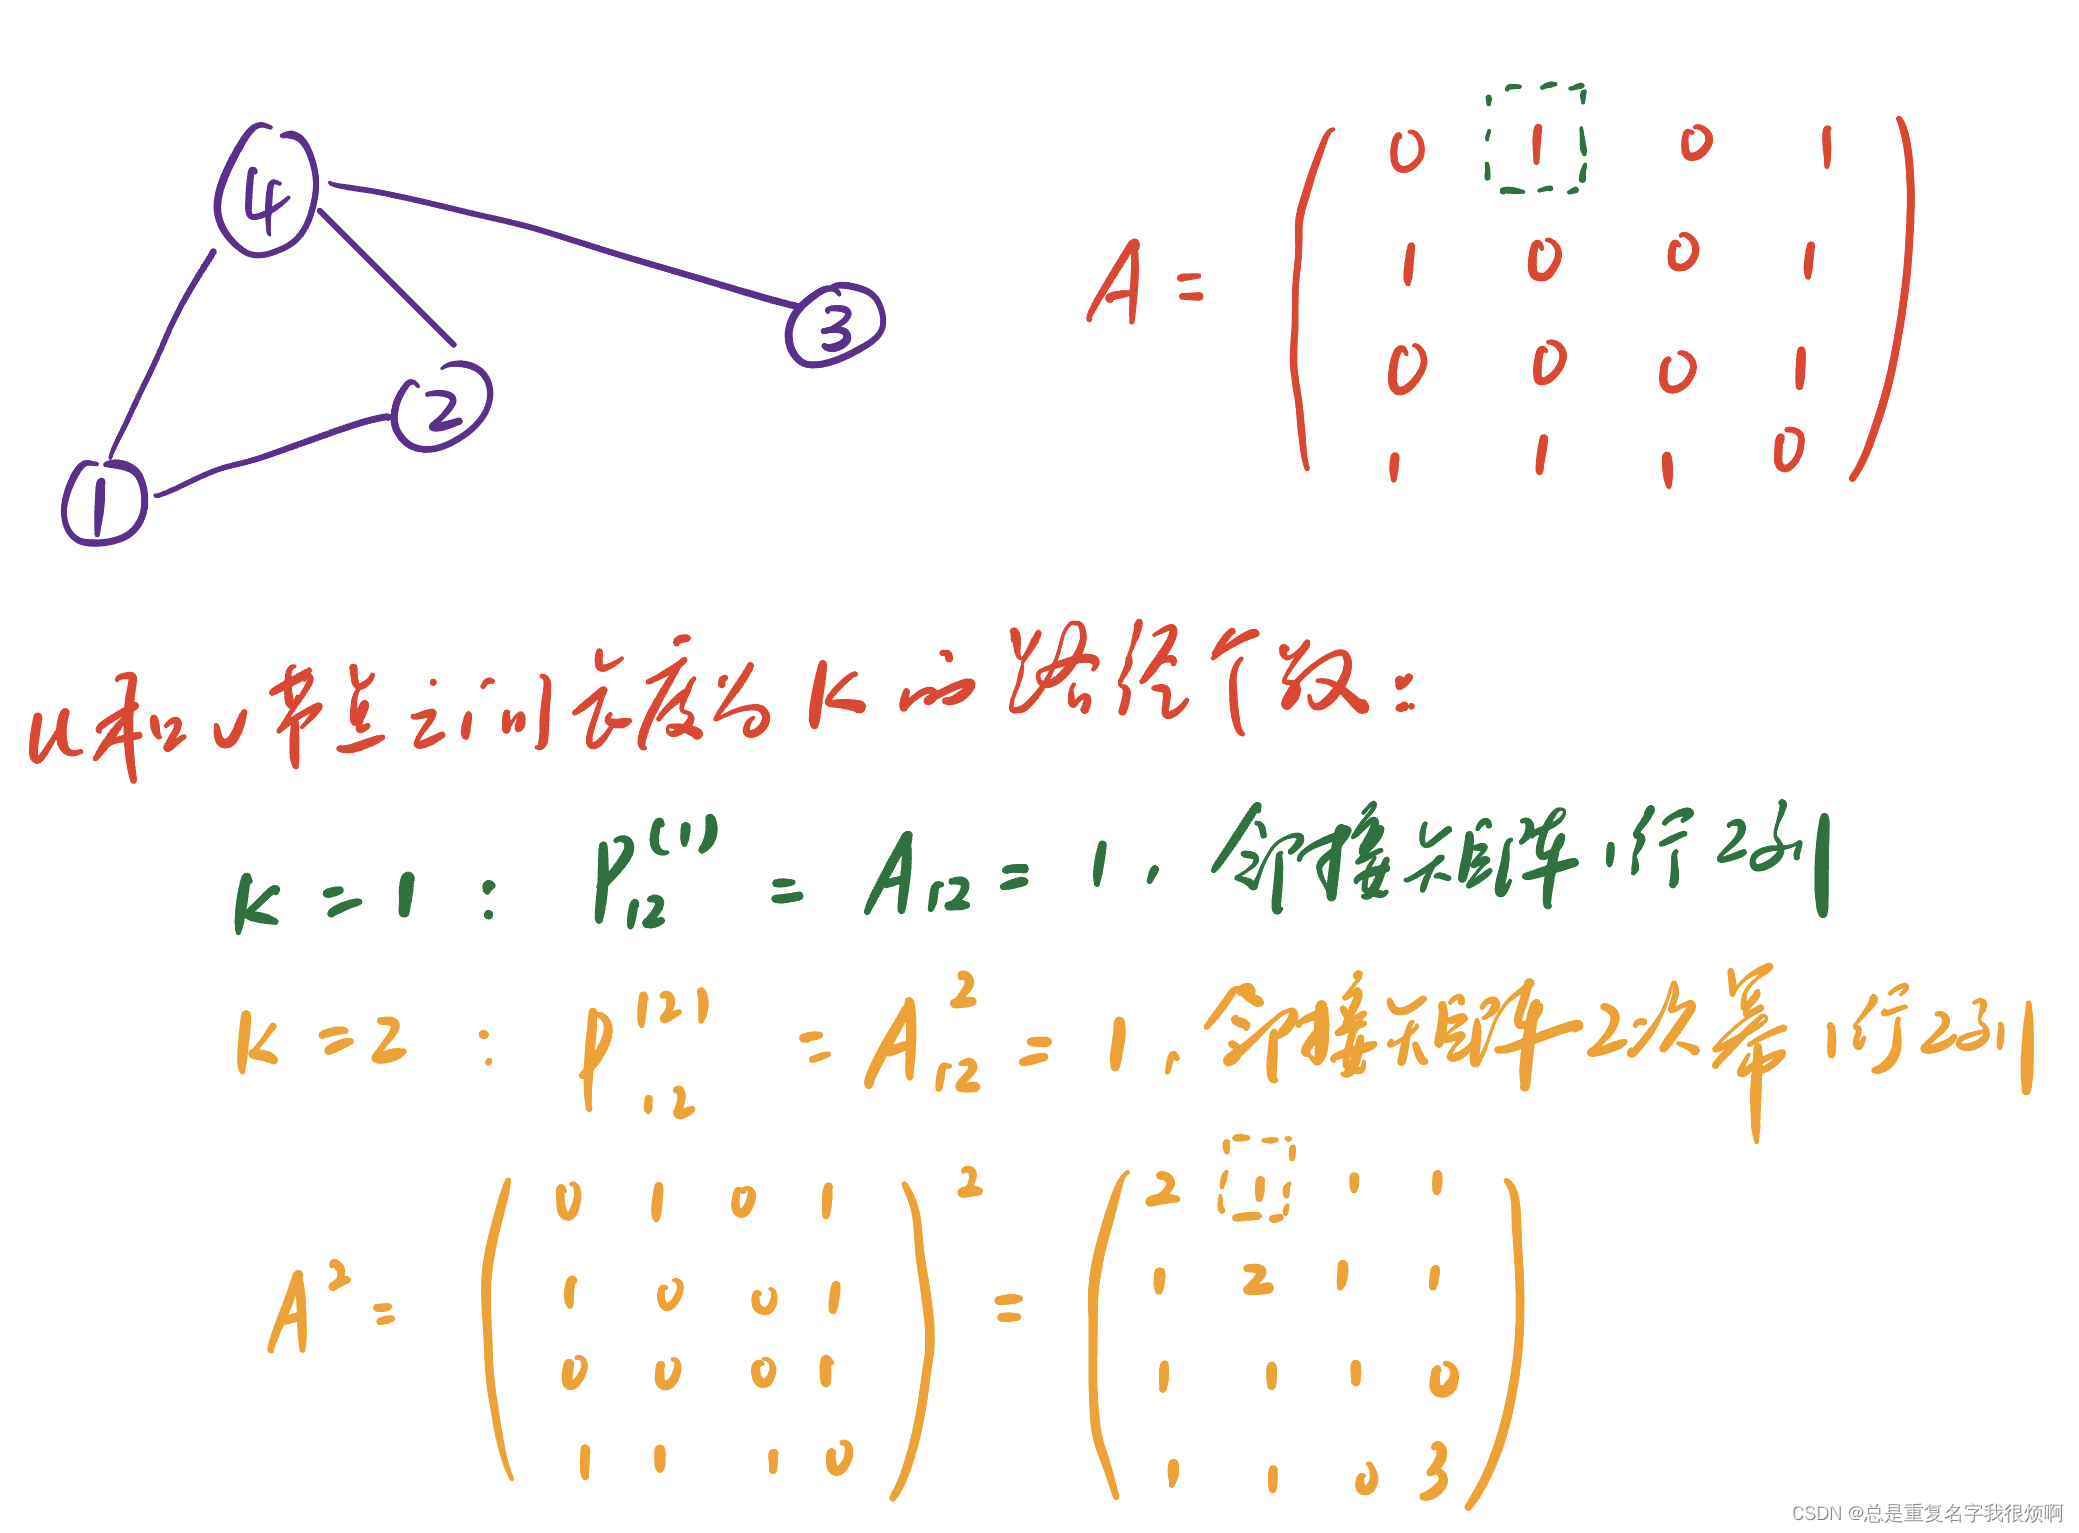 4
3
2
1
A = ( 0 1 0 1
1 0 0 1
0 0 0 1
1 1 1 0 )
u和v节点之间长度为K的路径个数:
K=1 : P₁₂⁽¹⁾ = A₁₂ = 1, 邻接矩阵1行2列
K=2 : P₁₂⁽²⁾ = A²₁₂ = 1, 邻接矩阵2次幂1行2列
A² = ( 0 1 0 1 )² = ( 2 1 1 1
1 0 0 1 1 2 1 1
0 0 0 1 1 1 1 0
1 1 1 0 1 1 0 3 )
CSDN @总是重复名字我很烦啊